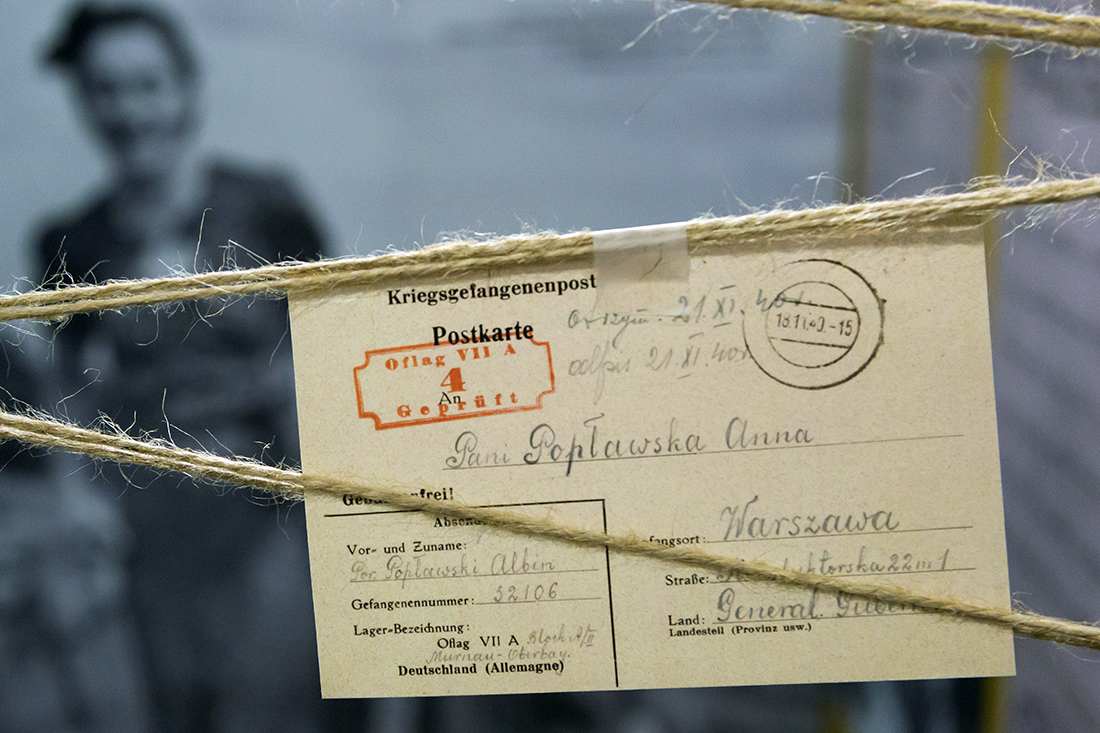 Kriegsgefangenenpost
Postkarte
Otrzym. 21.XI.40r.
odpis 21.XI.40r
18.11.40.-15
Oflag VII A
4
Geprüft
An
Pani Popławska Anna
Absen
Vor- und Zuname:
Por. Popławski Albin
Gefangenennummer: 32106
Lager-Bezeichnung:
Oflag VII A Block A/II
Murnau-Oberbay.
Deutschland (Allemagne)
fangsort: Warszawa
Straße: 22 m 1
Land: General. Gubern
Landesteil (Provinz usw.)